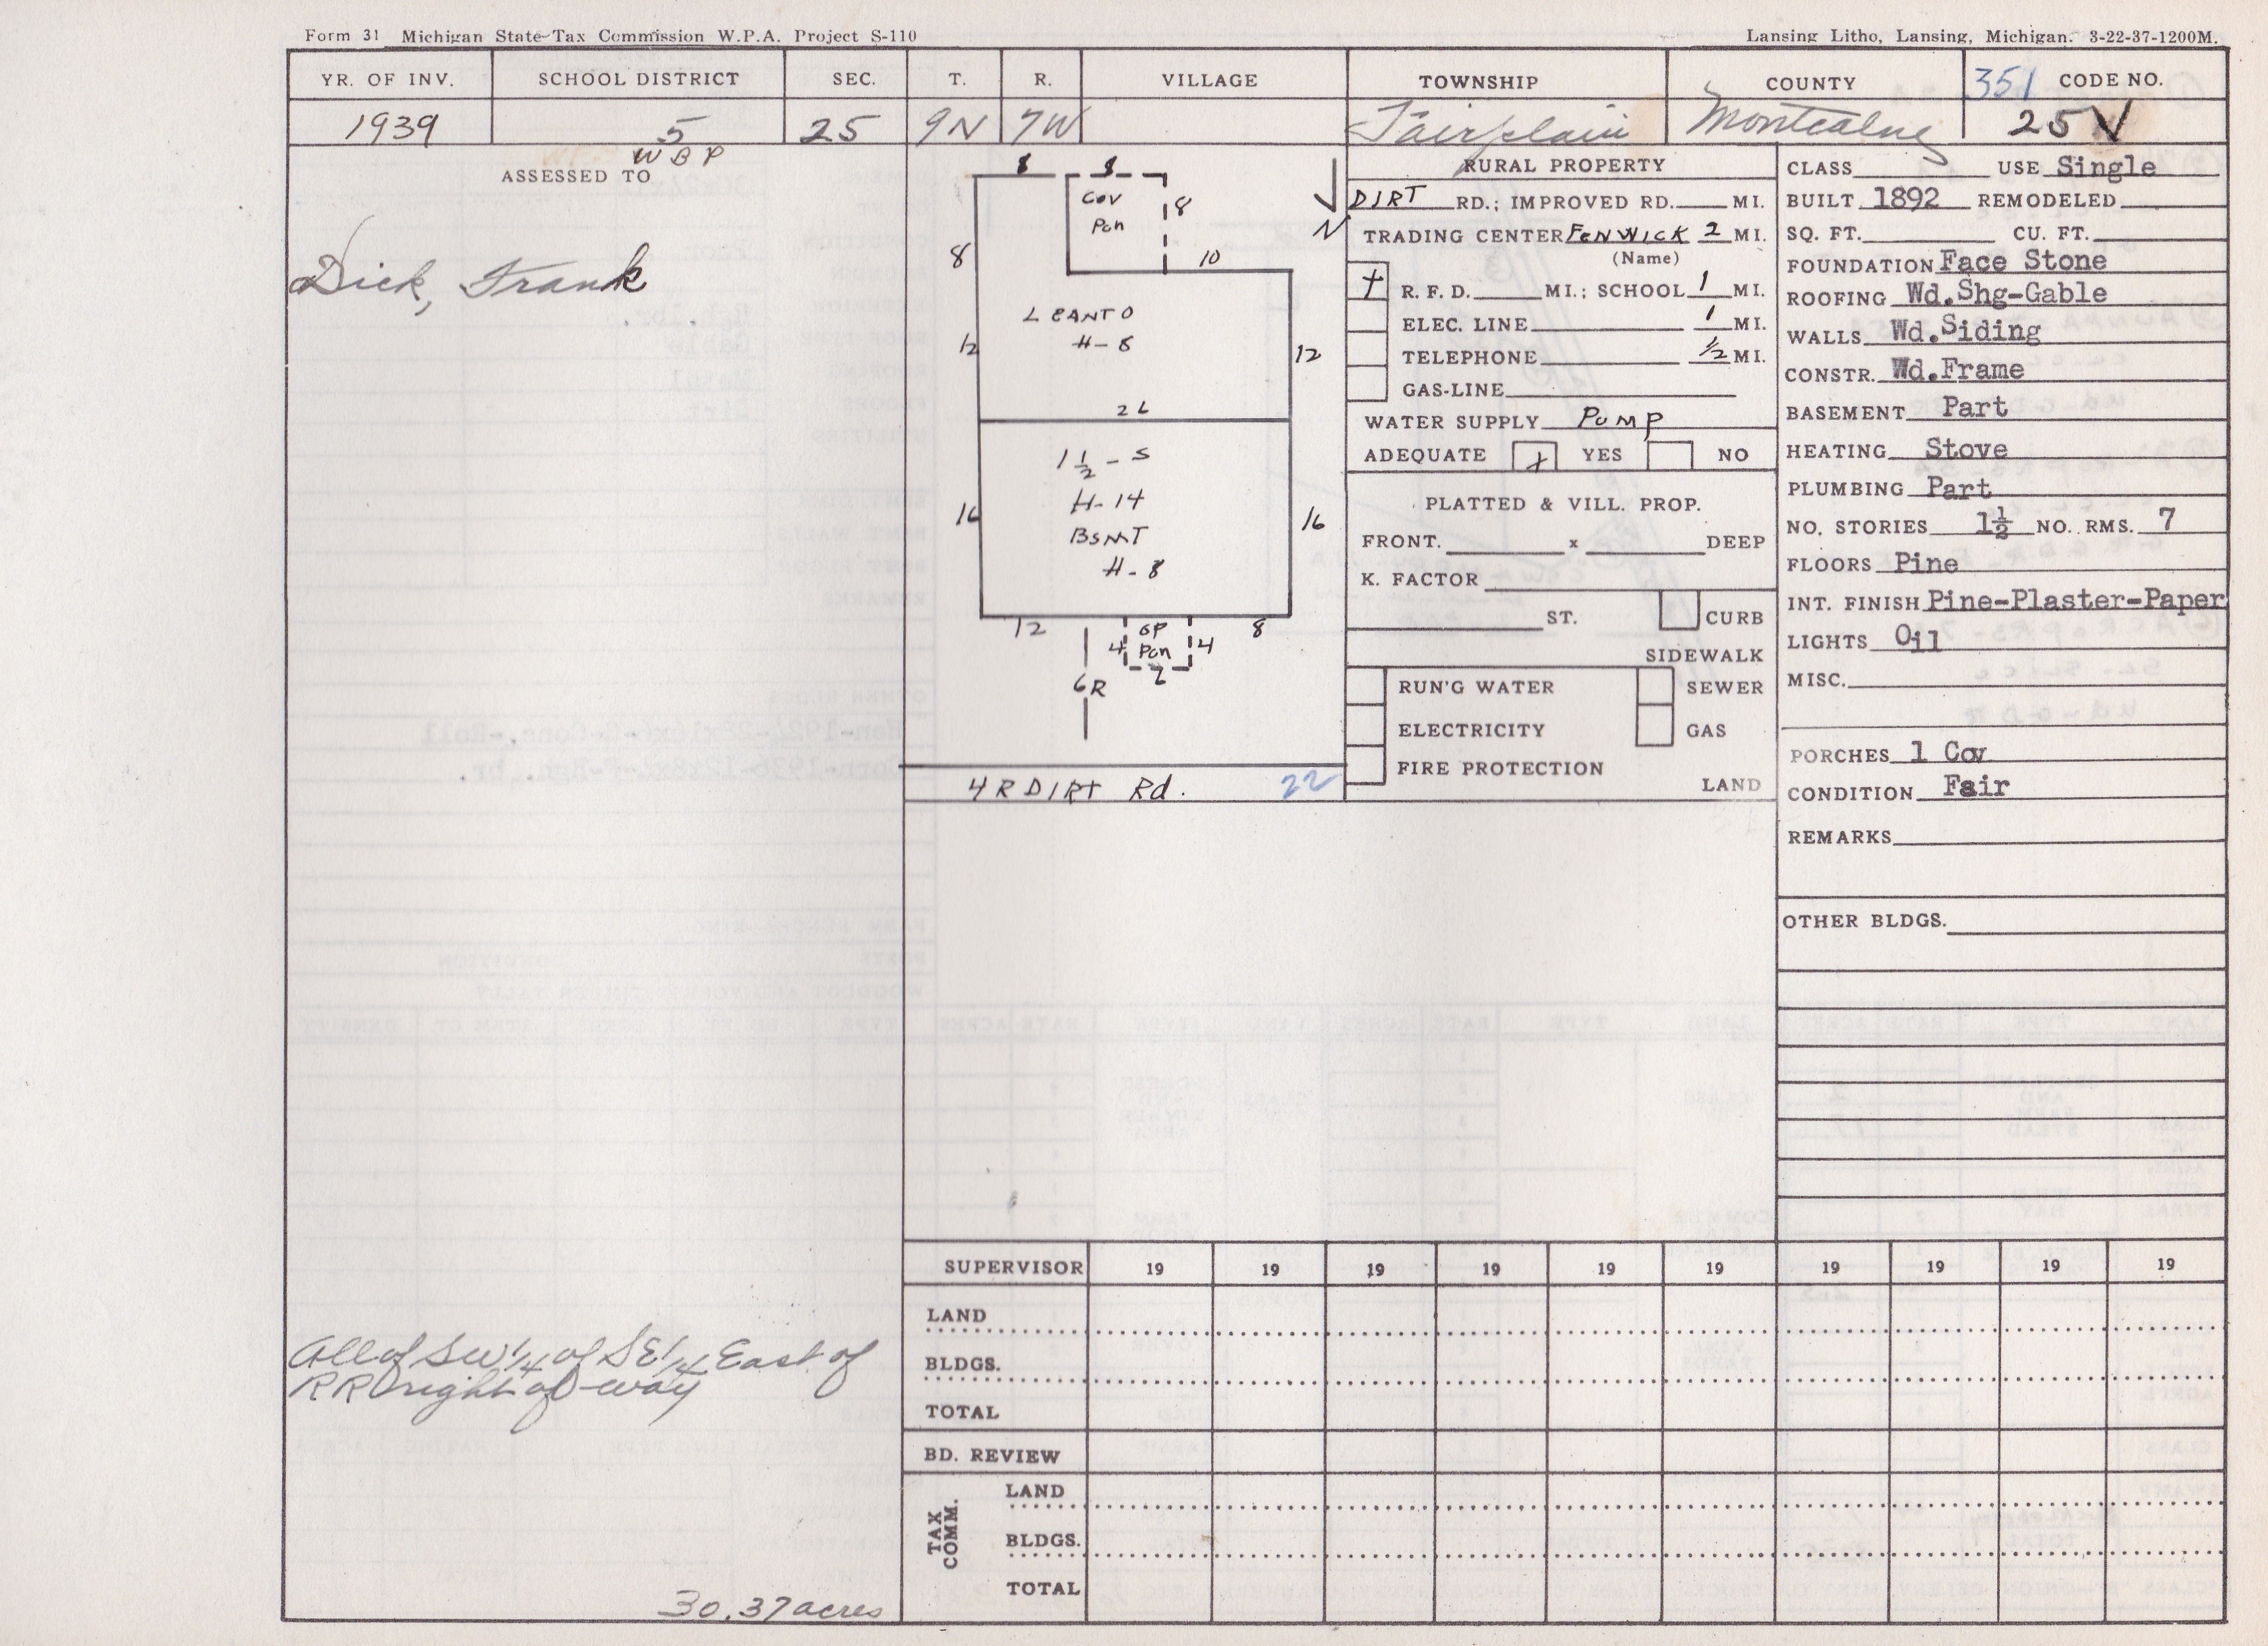 Form 31 Michigan State Tax Commission W.P.A. Project S-110
Lansing Litho, Lansing, Michigan. 3-22-37-1200M.
YR. OF INV. SCHOOL DISTRICT SEC. T. R. VILLAGE TOWNSHIP COUNTY 351 CODE NO.
1939 5 25 9N 7W Fairplain Montcalm 25 V
W B P
ASSESSED TO
Dick, Frank
All of SW 1/4 of SE 1/4 East of
RR right of way
30.37 acres
8 8
Cov
Pch
8
N
8
10
LEANTO
H-8
12 12
26
1 1/2 - S
H-14
16 16
BSMT
H-8
12 8
OP
Pch
4 4
6R
4 R DIRT Rd. 22
RURAL PROPERTY
DIRT RD.; IMPROVED RD. MI.
TRADING CENTER FENWICK 2 MI.
(Name)
+ R. F. D. MI.; SCHOOL 1 MI.
ELEC. LINE 1 MI.
TELEPHONE 1/2 MI.
GAS-LINE
WATER SUPPLY PUMP
ADEQUATE + YES NO
PLATTED & VILL. PROP.
FRONT. x DEEP
K. FACTOR
ST. CURB
SIDEWALK
RUN'G WATER SEWER
ELECTRICITY GAS
FIRE PROTECTION
LAND
CLASS USE Single
BUILT 1892 REMODELED
SQ. FT. CU. FT.
FOUNDATION Face Stone
ROOFING Wd.Shg-Gable
WALLS Wd.Siding
CONSTR. Wd.Frame
BASEMENT Part
HEATING Stove
PLUMBING Part
NO. STORIES 1½ NO. RMS. 7
FLOORS Pine
INT. FINISH Pine-Plaster-Paper
LIGHTS Oil
MISC.
PORCHES 1 Cov
CONDITION Fair
REMARKS
OTHER BLDGS.
SUPERVISOR 19 19 19 19 19 19 19 19 19 19
LAND
BLDGS.
TOTAL
BD. REVIEW
TAX COMM.
LAND
BLDGS.
TOTAL